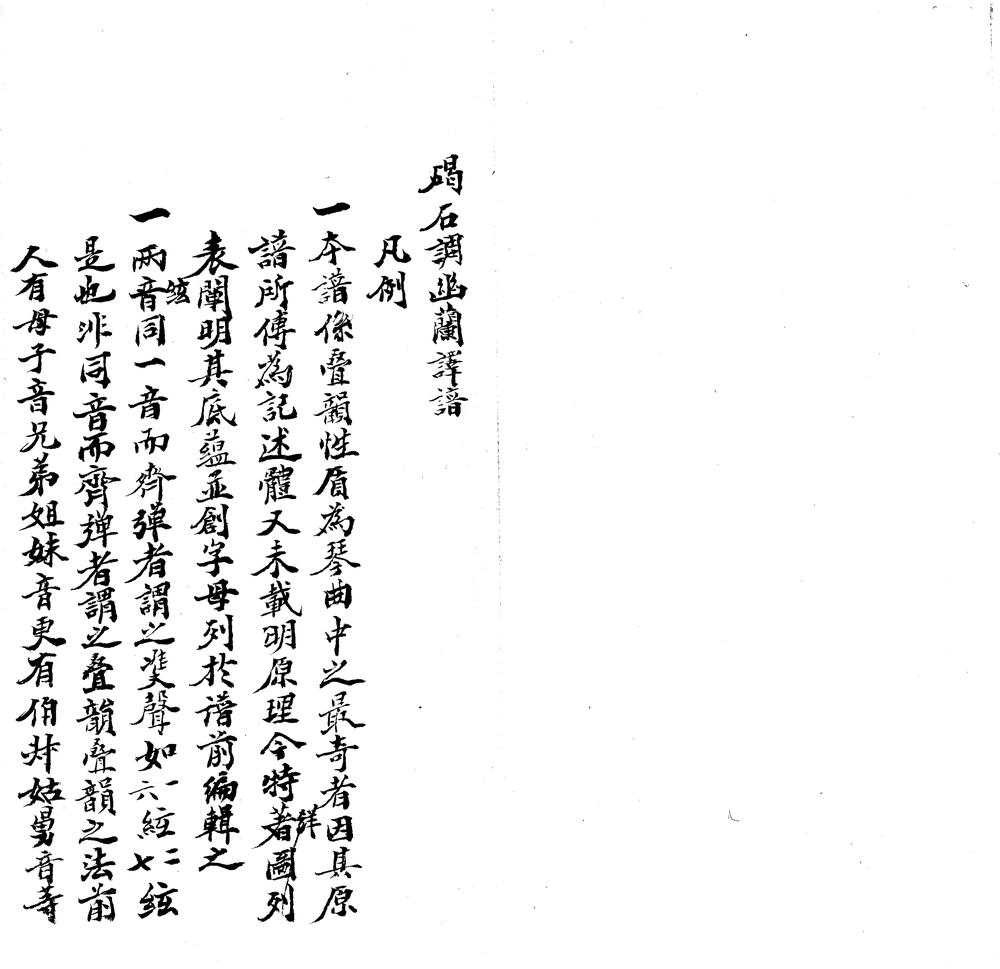 碣石調幽蘭譯譜
凡例
一本譜係疊韻性質為琴曲中之最奇者因其原
譜所傳為記述體又未載明原理今特著詳圖列
表闡明其底蘊並創字母列於譜前編輯之
一兩絃音同一音而齊彈者謂之雙聲如一六絃二七絃
是也非同音而齊彈者謂之疊韻疊韻之法前
人有母子音兄弟姐妹音更有伯叔姑舅音等